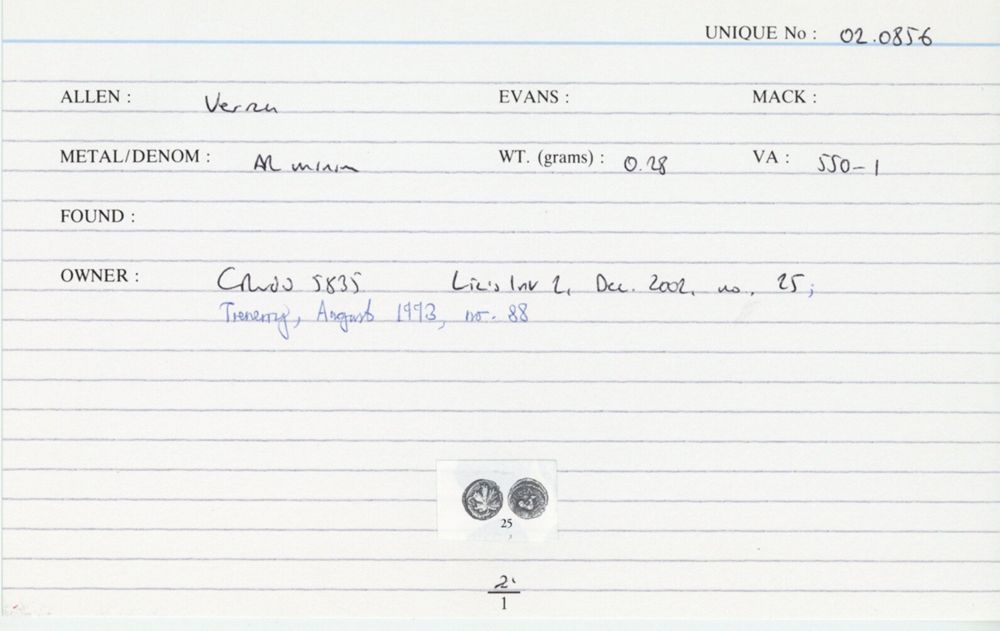 UNIQUE No : 02.0856
ALLEN : Verica EVANS : MACK :
METAL/DENOM : AR minim WT. (grams) : 0.28 VA : 550-1
FOUND :
OWNER : 5835 Liz's Inv 2, Dec. 2002, no. 25;
Trenerry, August 1973, no. 88
25
2
1